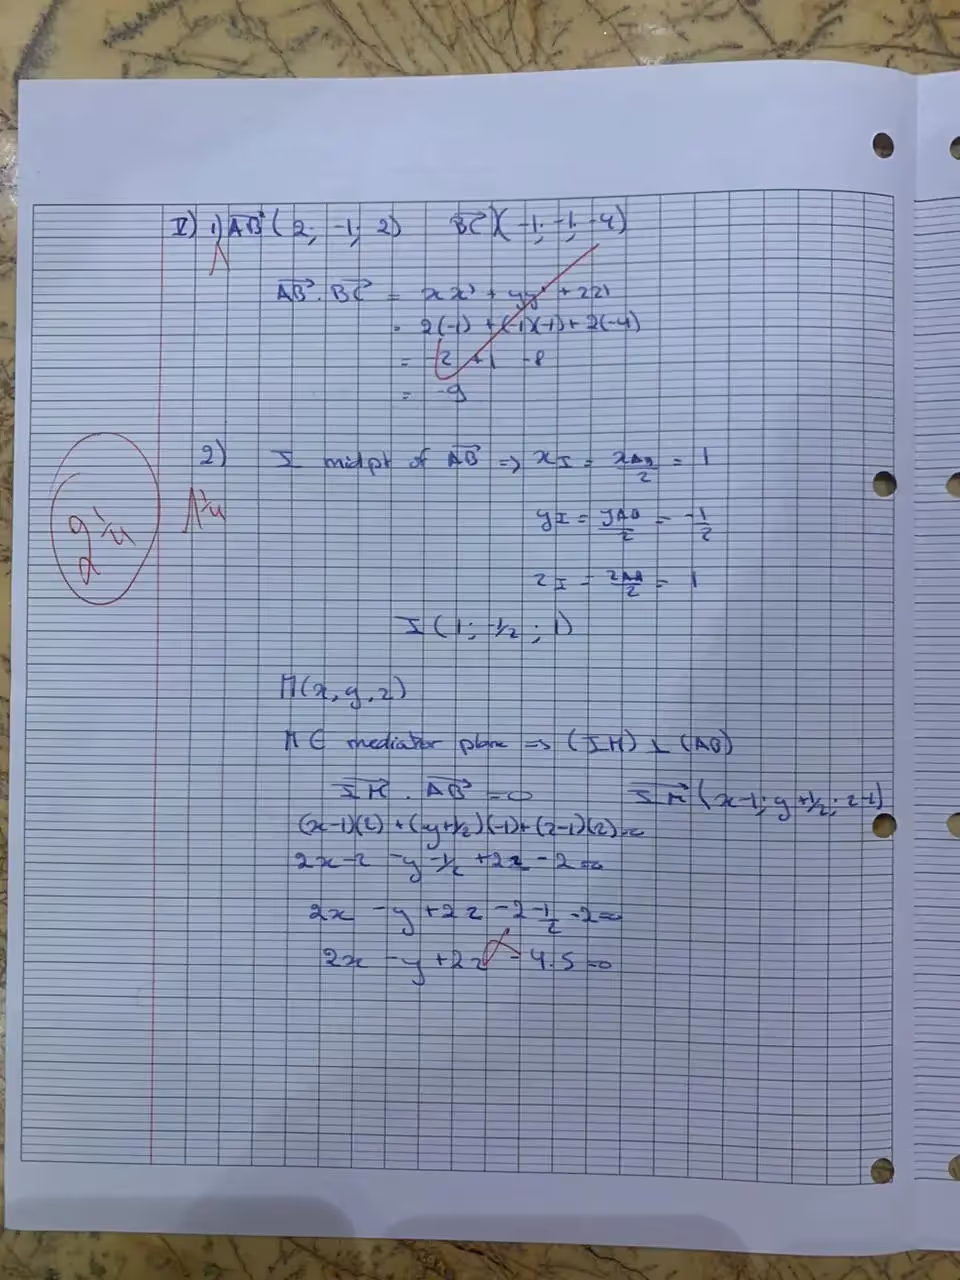 V) 1) AB (2; -1; 2) BC (-1; -1; -4)
1
AB . BC = xx' + yy' + zz'
= 2(-1) + (-1)(-1) + 2(-4)
= -2 +1 -8
= -9
2) I midpt of AB => xI = xAB/2 = 1
1 1/4
yI = yAB/2 = -1/2
2 1/4
zI = zAB/2 = 1
I (1; -1/2; 1)
M(x, y, z)
M ∈ mediator plane => (IM) ⊥ (AB)
IM . AB = 0 IM (x-1; y+1/2; z-1)
(x-1)(2) + (y+1/2)(-1) + (z-1)(2) = 0
2x-2 -y -1/2 +2z -2 = 0
2x -y +2z -2 -1/2 -2 = 0
2x -y +2z -4.5 = 0